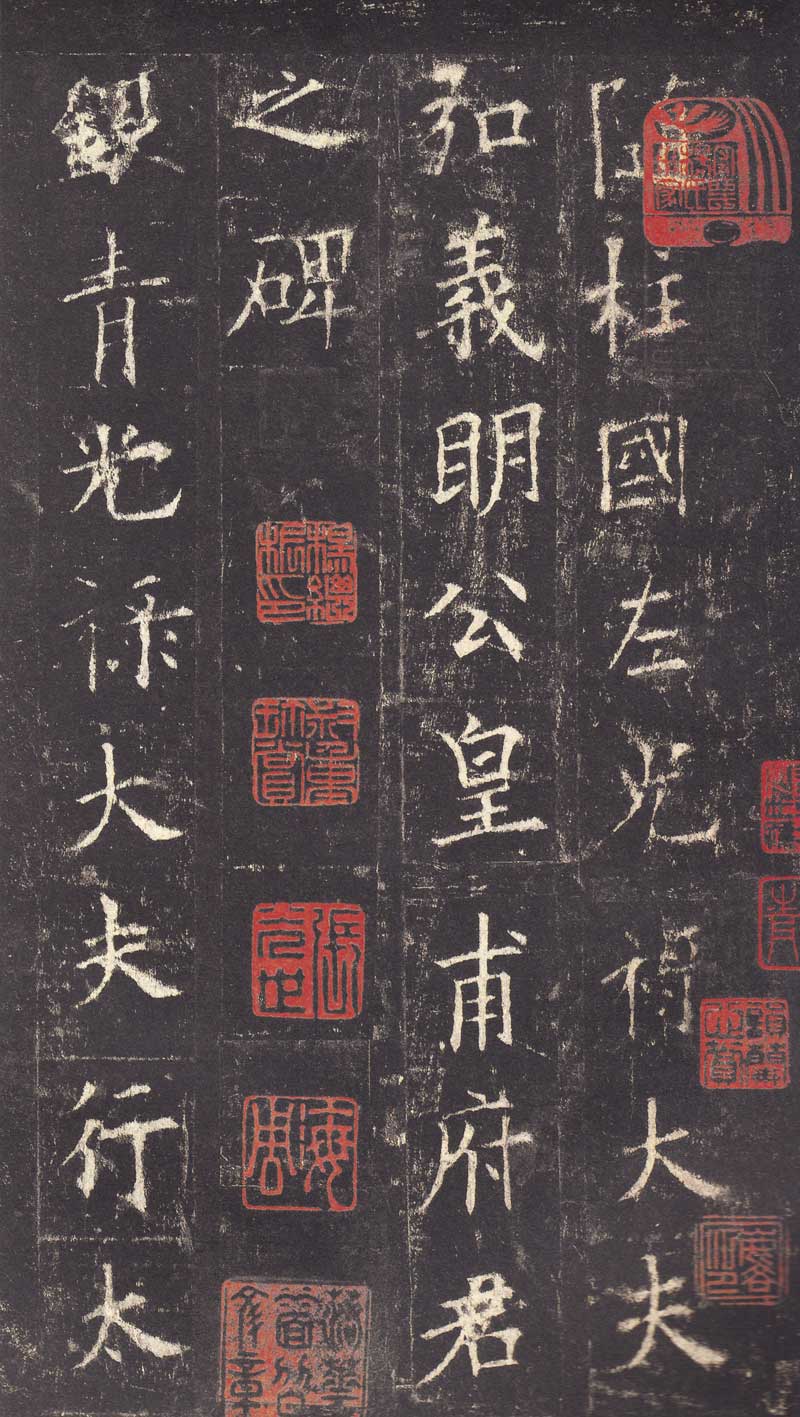 柱國左光祿大夫
弘義明公皇甫府君
之碑
楊繼振印
銀青光祿大夫行太